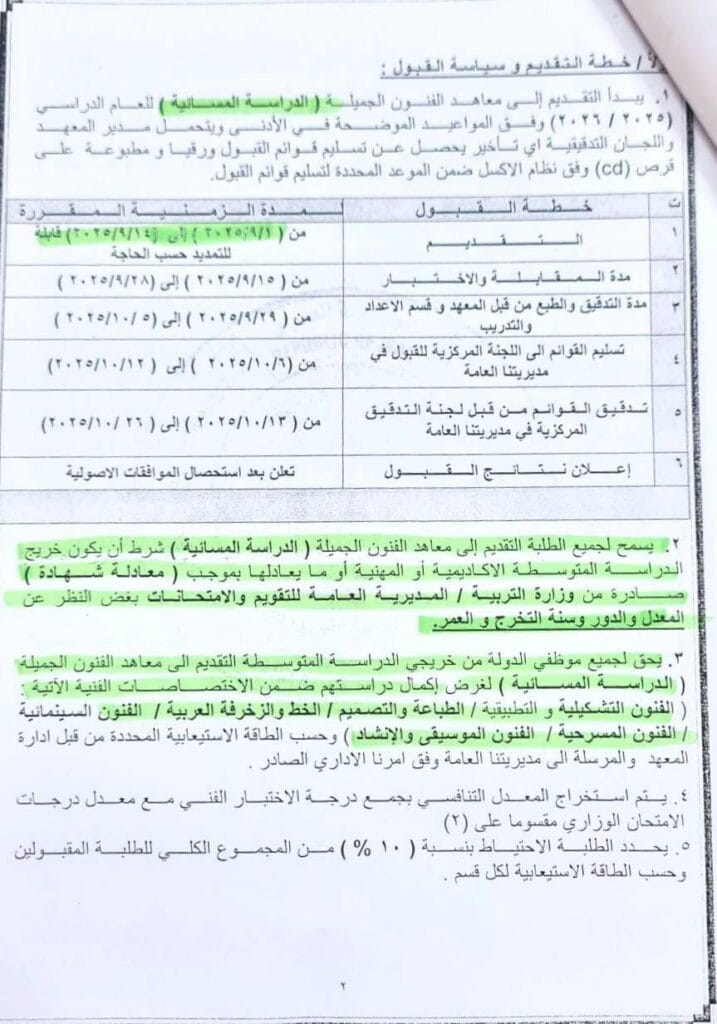 / خطة التقديم و سياسة القبول :
١. يبدأ التقديم إلى معاهد الفنون الجميلة ( الدراسة المسائية ) للعام الدراسي
(٢٠٢٥ / ٢٠٢٦) وفق المواعيد الموضحة في الأدنى ويتحمل مدير المعهد
واللجان التدقيقية اي تأخير يحصل عن تسليم قوائم القبول ورقيا و مطبوعة على
قرص (cd) وفق نظام الاكسل ضمن الموعد المحددة لتسليم قوائم القبول.
ت خطة القبول المدة الزمنية المقررة
١ التقديم من ( ٢٠٢٥/٩/١ ) إلى (٢٠٢٥/٩/١٤) قابلة
للتمديد حسب الحاجة
٢ مدة المقابلة والاختبار من ( ٢٠٢٥/٩/١٥ ) إلى (٢٠٢٥/٩/٢٨ )
٣ مدة التدقيق والطبع من قبل المعهد و قسم الاعداد من ( ٢٠٢٥/٩/٢٩ ) إلى ( ٢٠٢٥/١٠/٥ )
والتدريب
٤ تسليم القوائم الى اللجنة المركزية للقبول في من (٢٠٢٥/١٠/٦ ) إلى ( ٢٠٢٥/١٠/١٢ )
مديريتنا العامة
٥ تدقيق القوائم من قبل لجنة التدقيق من ( ٢٠٢٥/١٠/١٣ ) إلى ( ٢٦ /٢٠٢٥/١٠)
المركزية في مديريتنا العامة
٦ إعلان نتائج القبول تعلن بعد استحصال الموافقات الاصولية
٢. يسمح لجميع الطلبة التقديم إلى معاهد الفنون الجميلة ( الدراسة المسائية ) شرط أن يكون خريج
الدراسة المتوسطة الاكاديمية أو المهنية أو ما يعادلها بموجب ( معادلة شهادة )
صادرة من وزارة التربية / المديرية العامة للتقويم والامتحانات بغض النظر عن
المعدل والدور وسنة التخرج و العمر.
٣. يحق لجميع موظفي الدولة من خريجي الدراسة المتوسطة التقديم الى معاهد الفنون الجميلة
( الدراسة المسائية ) لغرض إكمال دراستهم ضمن الاختصاصات الفنية الآتية :
( الفنون التشكيلية و التطبيقية / الطباعة والتصميم / الخط والزخرفة العربية / الفنون السينمائية
/ الفنون المسرحية / الفنون الموسيقى والإنشاد ) وحسب الطاقة الاستيعابية المحددة من قبل ادارة
المعهد والمرسلة الى مديريتنا العامة وفق امرنا الاداري الصادر .
٤. يتم استخراج المعدل التنافسي بجمع درجة الاختبار الفني مع معدل درجات
الامتحان الوزاري مقسوما على (٢)
٥. يحدد الطلبة الاحتياط بنسبة ( ١٠ % ) من المجموع الكلي للطلبة المقبولين
وحسب الطاقة الاستيعابية لكل قسم .
٢